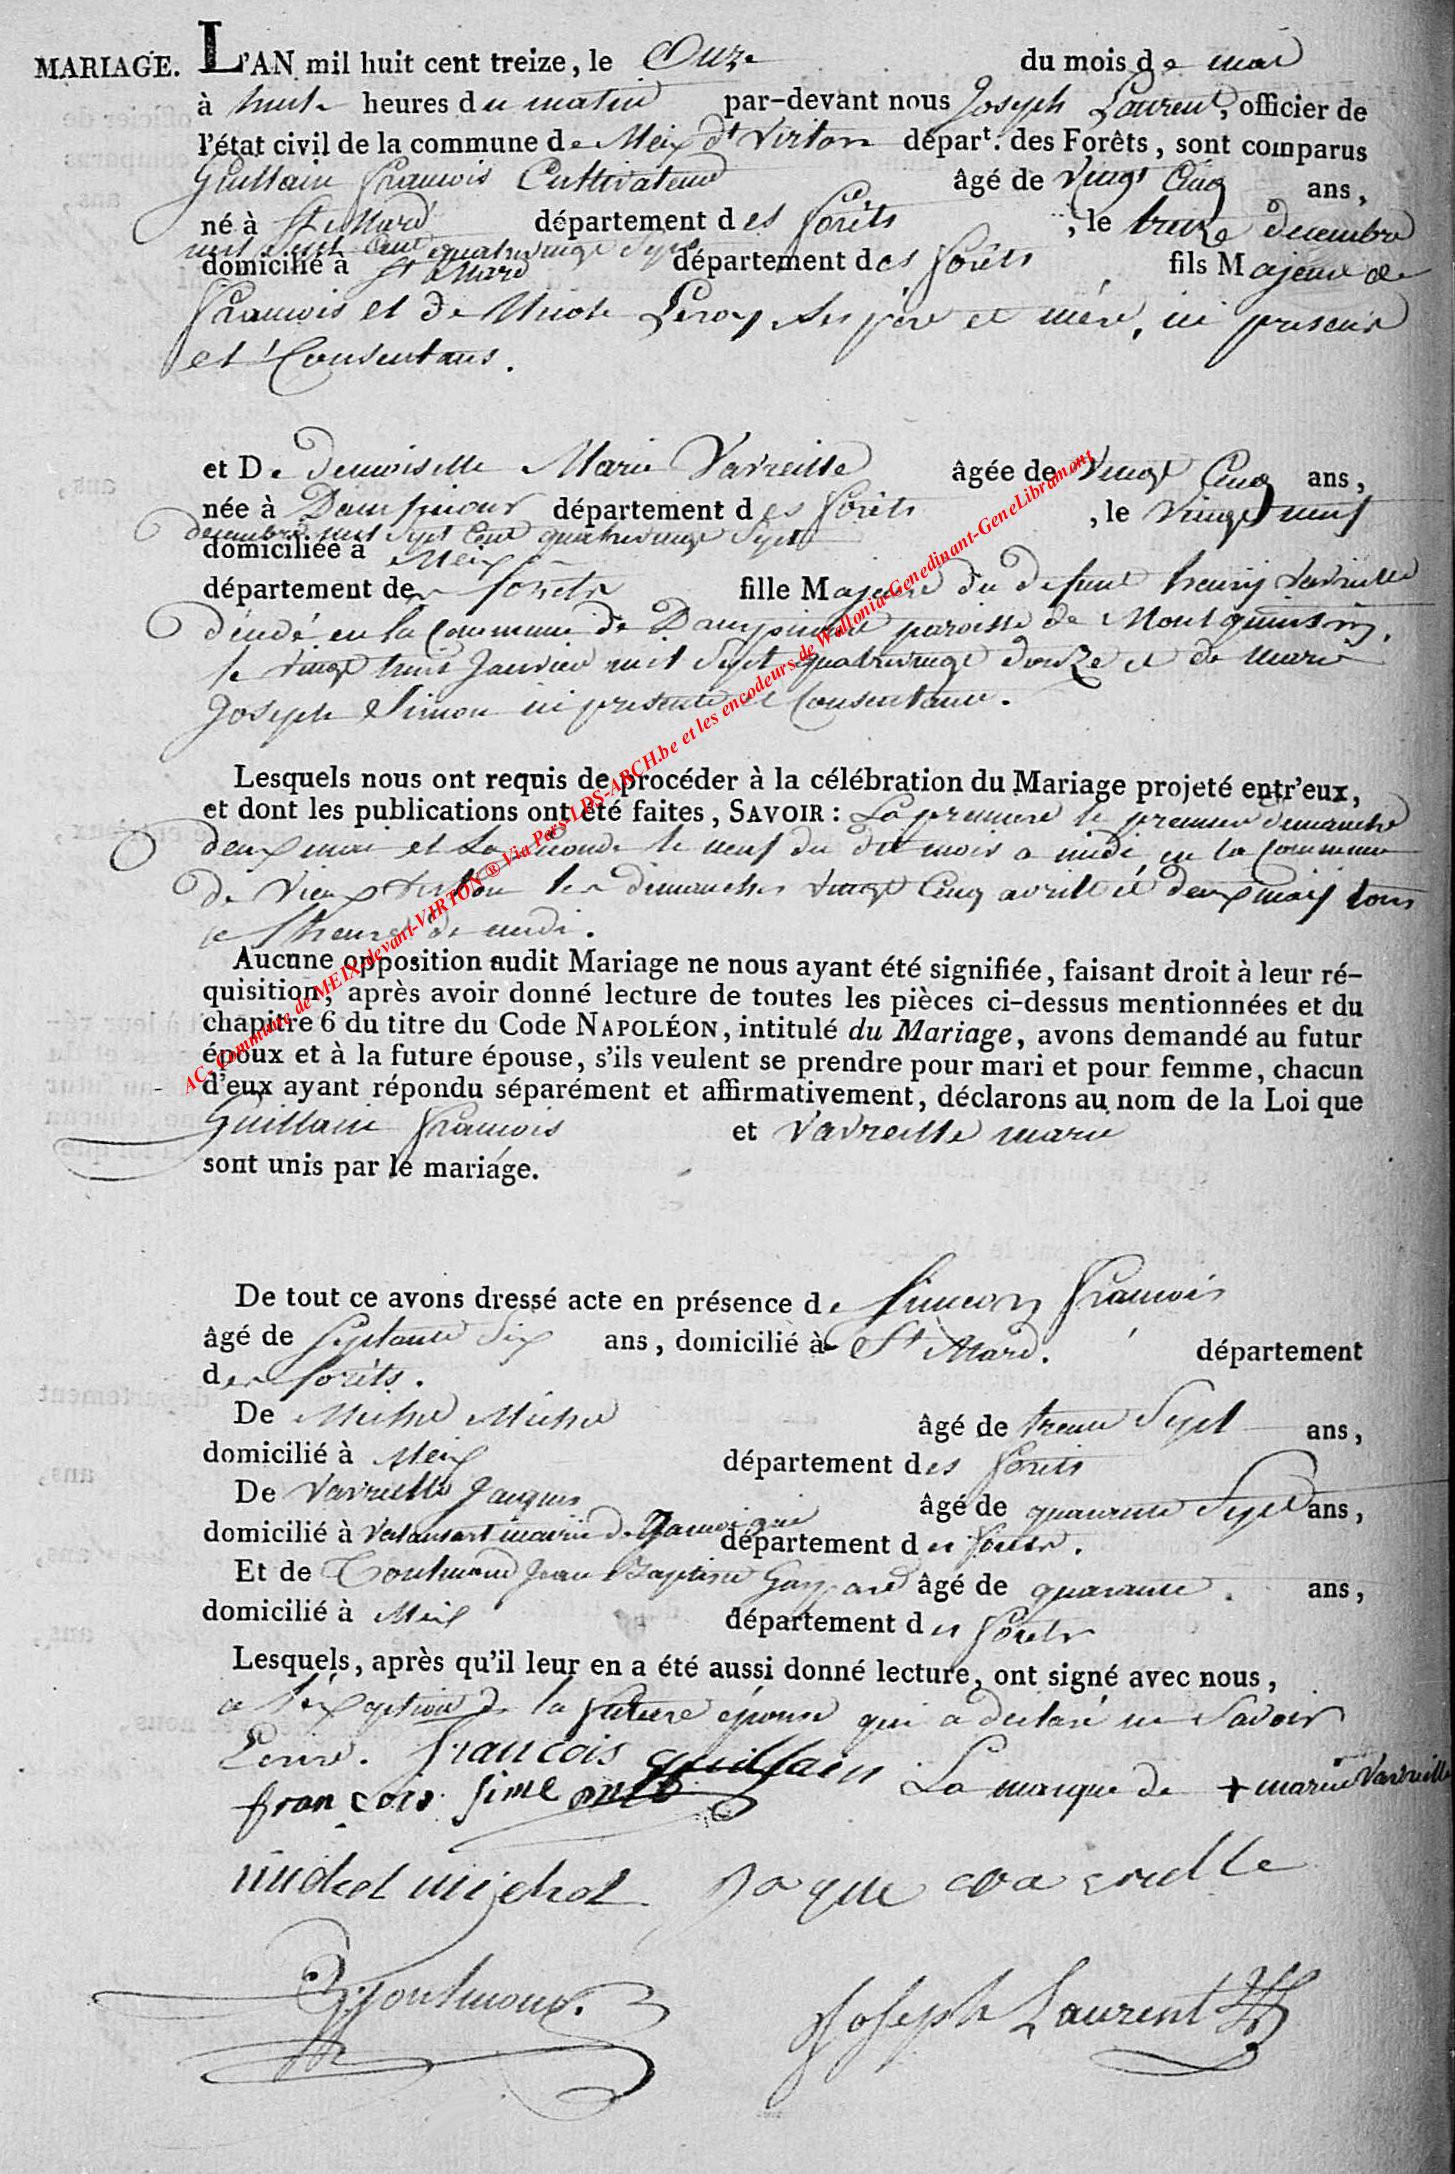 MARIAGE. L'AN mil huit cent treize, le Onze du mois de mai
à huit heures du matin par-devant nous Joseph Laurent, officier de
l'état civil de la commune de Meix dt Virton départ. des Forêts, sont comparus
Guillain François Cultivateur âgé de Vingt Cinq ans,
né à St Mard département des forêts, le treize decembre
mil Sept Cent quatrevingt Sept
domicilié à St Mard département des forêts fils Majeur de
François et de Nicole Leroy Ses père et mère, ici presens
et Consentans.
et De demoiselle Marie Vavreille âgée de Vingt Cinq ans,
née à Dampicour département des forêts, le Vingt neuf
decembre mil Sept Cent quatrevingt Sept
domiciliée à Meix
département des forets fille Majeure du defunt henry Vavreille
décédé en la Commune de Dampicour paroisse de Montquintin,
le vingt huit Janvier mil Sept quatrevingt douze et de Marie
Joseph Simon ici presente et Consentante.
Lesquels nous ont requis de procéder à la célébration du Mariage projeté entr'eux,
et dont les publications ont été faites, SAVOIR : La premiere le premier dimanche
deux mai et la seconde le neuf du dit mois a midi, en la Commune
de Vieux Virton les dimanches vingt Cinq avril et deux mai tous
a l'heure de midi.
Aucune opposition audit Mariage ne nous ayant été signifiée, faisant droit à leur ré-
quisition, après avoir donné lecture de toutes les pièces ci-dessus mentionnées et du
chapitre 6 du titre du Code NAPOLÉON, intitulé du Mariage, avons demandé au futur
époux et à la future épouse, s'ils veulent se prendre pour mari et pour femme, chacun
d'eux ayant répondu séparément et affirmativement, déclarons au nom de la Loi que
Guillain François et Vavreille marie
sont unis par le mariage.
De tout ce avons dressé acte en présence de Simeon François
âgé de Septante Six ans, domicilié à St Mard. département
des forêts.
De Michel Michel âgé de trente Sept ans,
domicilié à Meix département des forets
De Vavreille Jacques âgé de quarante Sept ans,
domicilié à Valansart mairie de Jamoigne département des forets.
Et de Goulmond Jean Baptiste Gaspard âgé de quarante. ans,
domicilié à Meix département des forets
Lesquels, après qu'il leur en a été aussi donné lecture, ont signé avec nous,
a l'exception de la future épouse qui a declaré ne Savoir
Ecrire. françois guillain La marque de + marie Vavreille
françois simeon
michel michel Jaque vavreille
Goulmont. Joseph Laurent
AC-Commune de MEIX-devant-VIRTON ® Via Pers-LDS-ARCH.be et les encodeurs de Wallonia-Genedinant-GeneLibramont